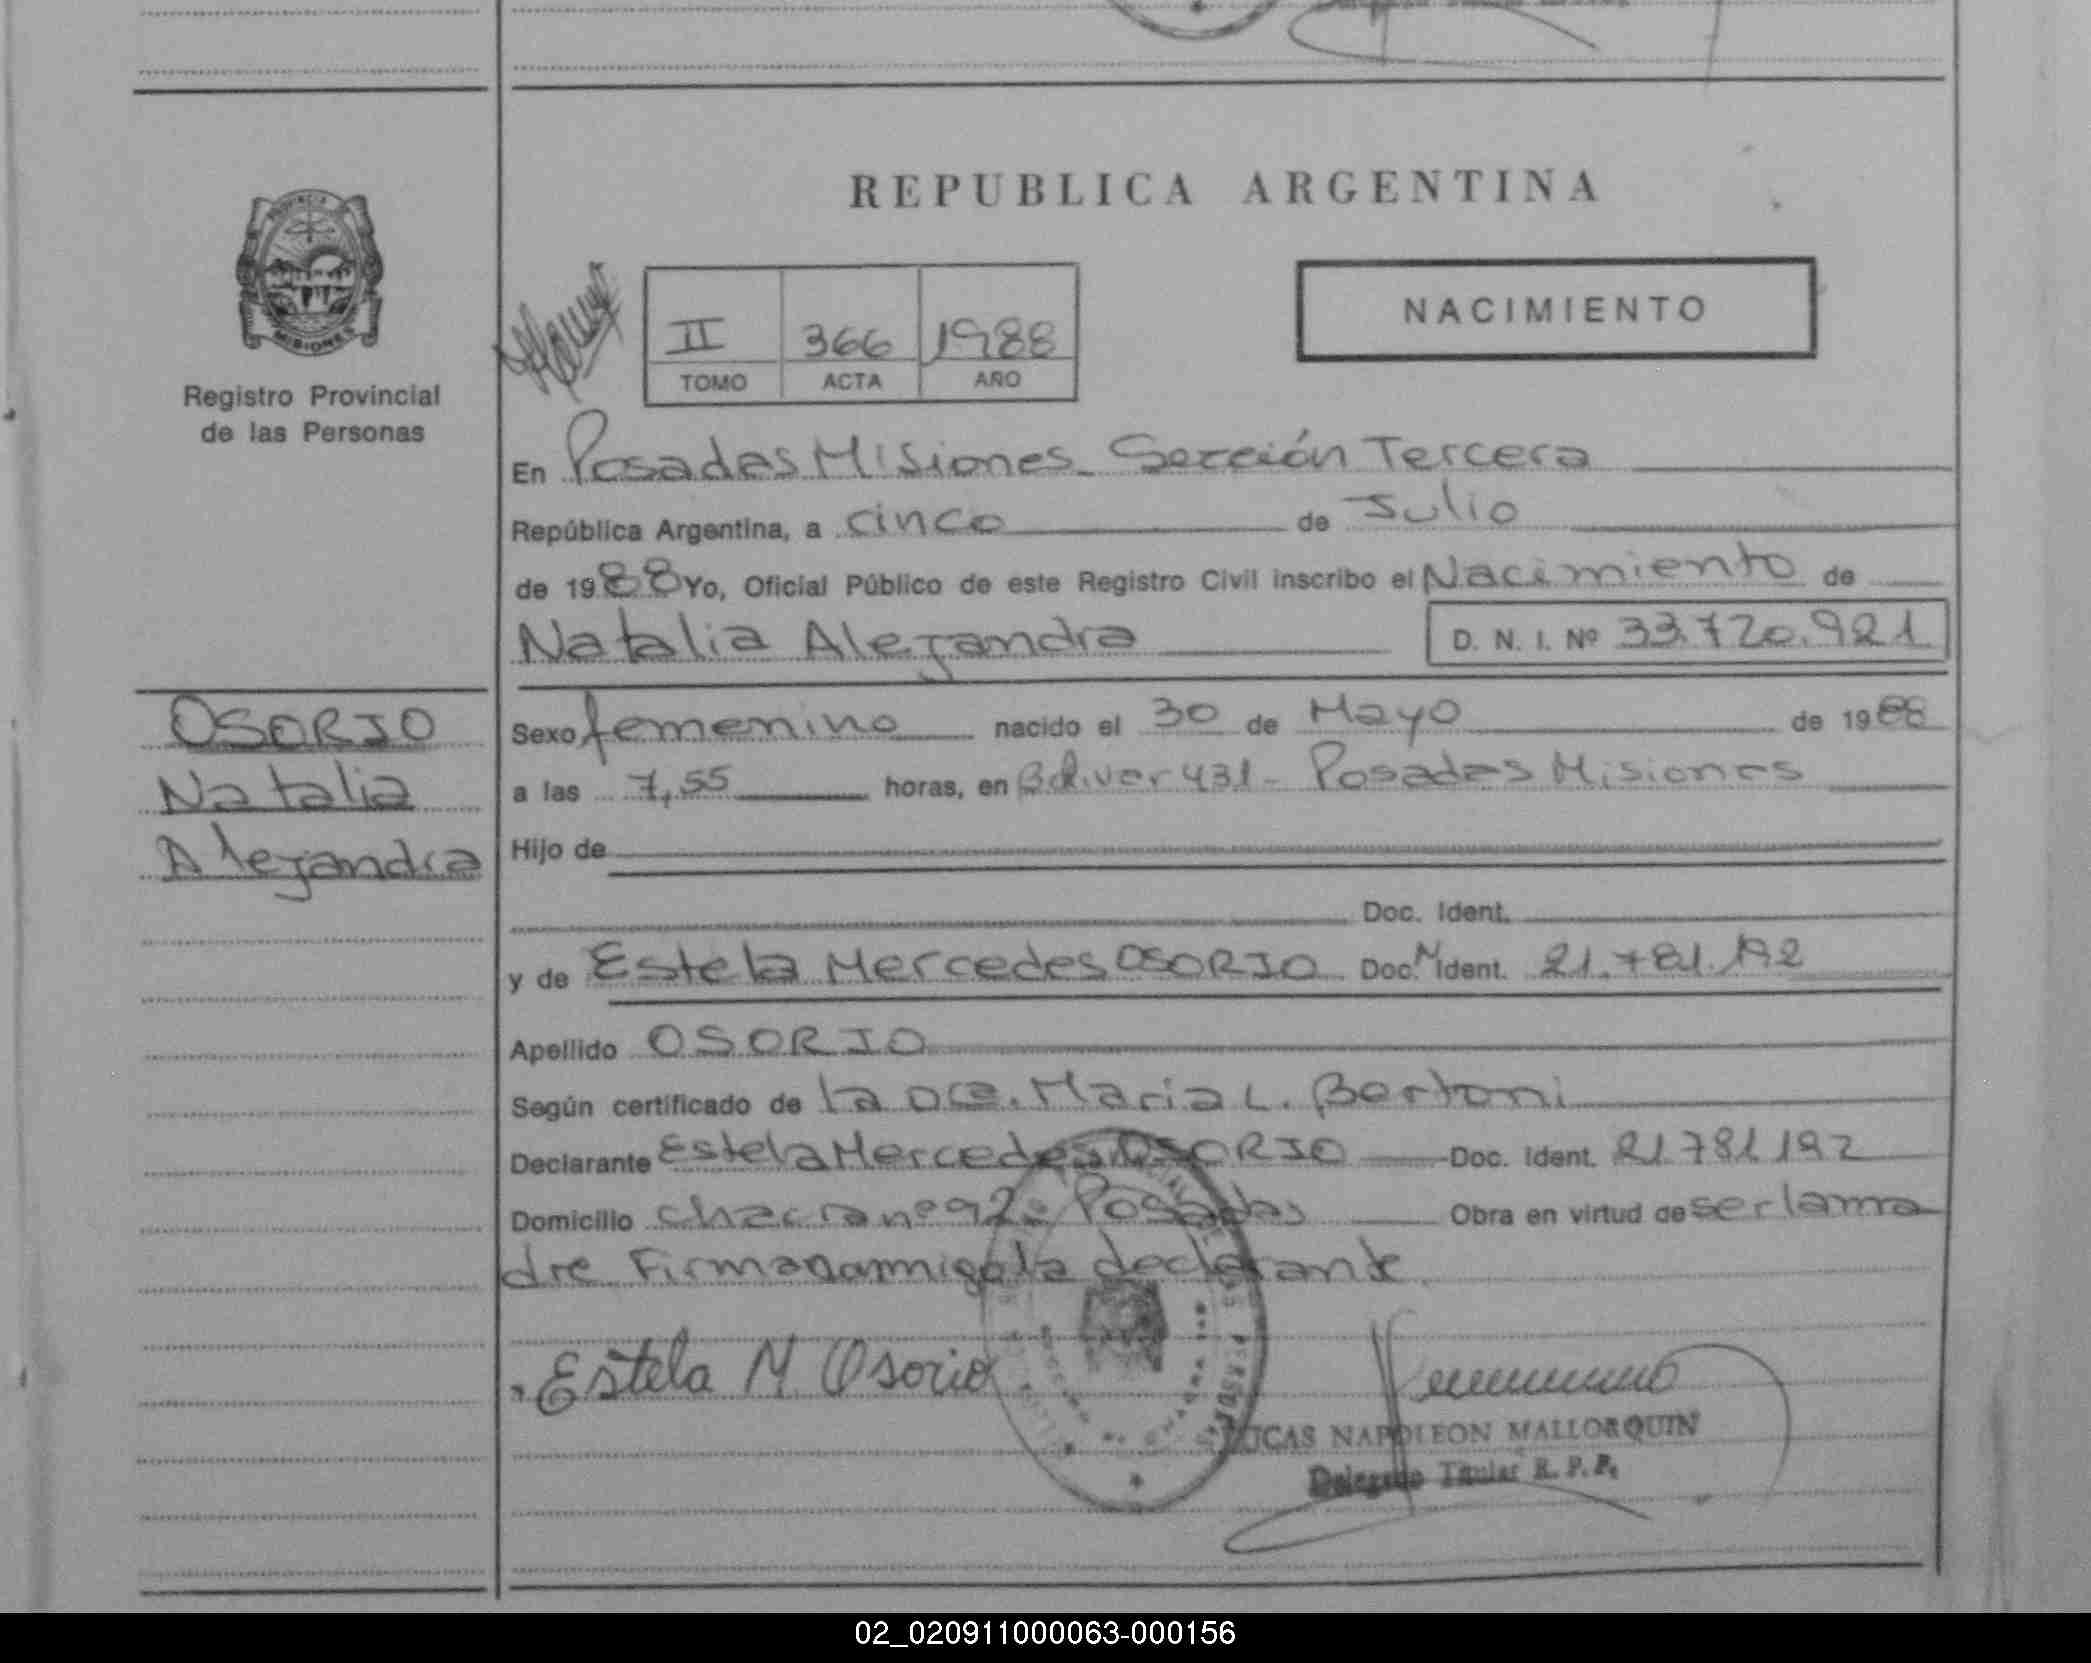 REPUBLICA ARGENTINA
PROVINCIA
MISIONES
Registro Provincial
de las Personas
II 366 1988
TOMO ACTA AÑO
NACIMIENTO
En Posadas Misiones - Sección Tercera
República Argentina, a cinco de Julio
de 1988 Yo, Oficial Público de este Registro Civil inscribo el Nacimiento de
Natalia Alejandra D. N. I. Nº 33.720.921
OSORIO
Natalia
Alejandra
Sexo femenino nacido el 30 de Mayo de 1988
a las 7,55 horas, en Bolivar 431 - Posadas Misiones
Hijo de
Doc. Ident.
y de Estela Mercedes OSORIO Doc. Ident. 21.781.192
Apellido OSORIO
Según certificado de la Dra. Maria L. Bertoni
Declarante Estela Mercedes OSORIO Doc. Ident. 21.781.192
Domicilio chacra nº 92 Posadas Obra en virtud de ser la ma
dre Firma conmigo la declarante
Estela M Osorio
LUCAS NAPOLEON MALLORQUIN
Delegado Titular R. P. P.
02_020911000063-000156